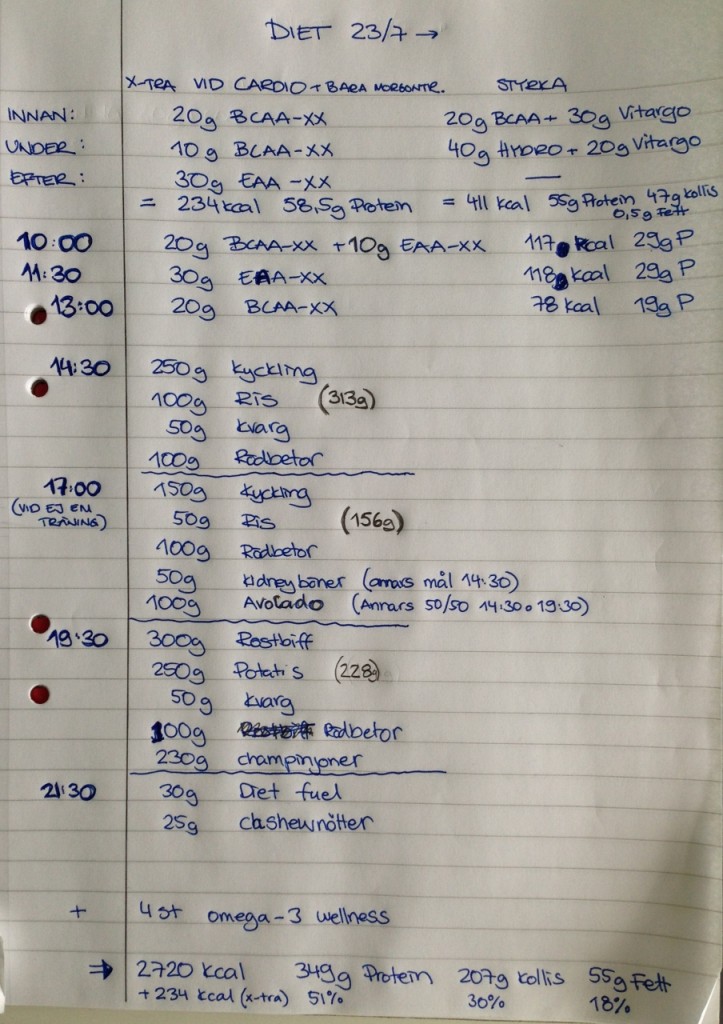 DIET 23/7 →
X-TRA VID CARDIO + BARA MORGONTR. STYRKA
INNAN: 20g BCAA-XX 20g BCAA + 30g Vitargo
UNDER: 10g BCAA-XX 40g HYDRO + 20g Vitargo
EFTER: 30g EAA-XX —
= 234 kcal 58,5g Protein = 411 kcal 55g Protein 47g kollis
0,5g Fett
10:00 20g BCAA-XX + 10g EAA-XX 117 kcal 29g P
11:30 30g EAA-XX 118 kcal 29g P
13:00 20g BCAA-XX 78 kcal 19g P
14:30 250g kyckling
100g Ris (313g)
50g kvarg
100g Rödbetor
17:00 150g kyckling
(VID EJ EM TRÄNING) 50g Ris (156g)
100g Rödbetor
50g kidneybönor (annars mål 14:30)
100g Avocado (Annars 50/50 14:30 o 19:30)
19:30 300g Rostbiff
250g Potatis (228g)
50g kvarg
100g Rödbetor
230g champinjoner
21:30 30g Diet fuel
25g cashewnötter
+ 4 st omega-3 wellness
⇒ 2720 kcal 349g Protein 207g kollis 55g Fett
+ 234 kcal (x-tra) 51% 30% 18%